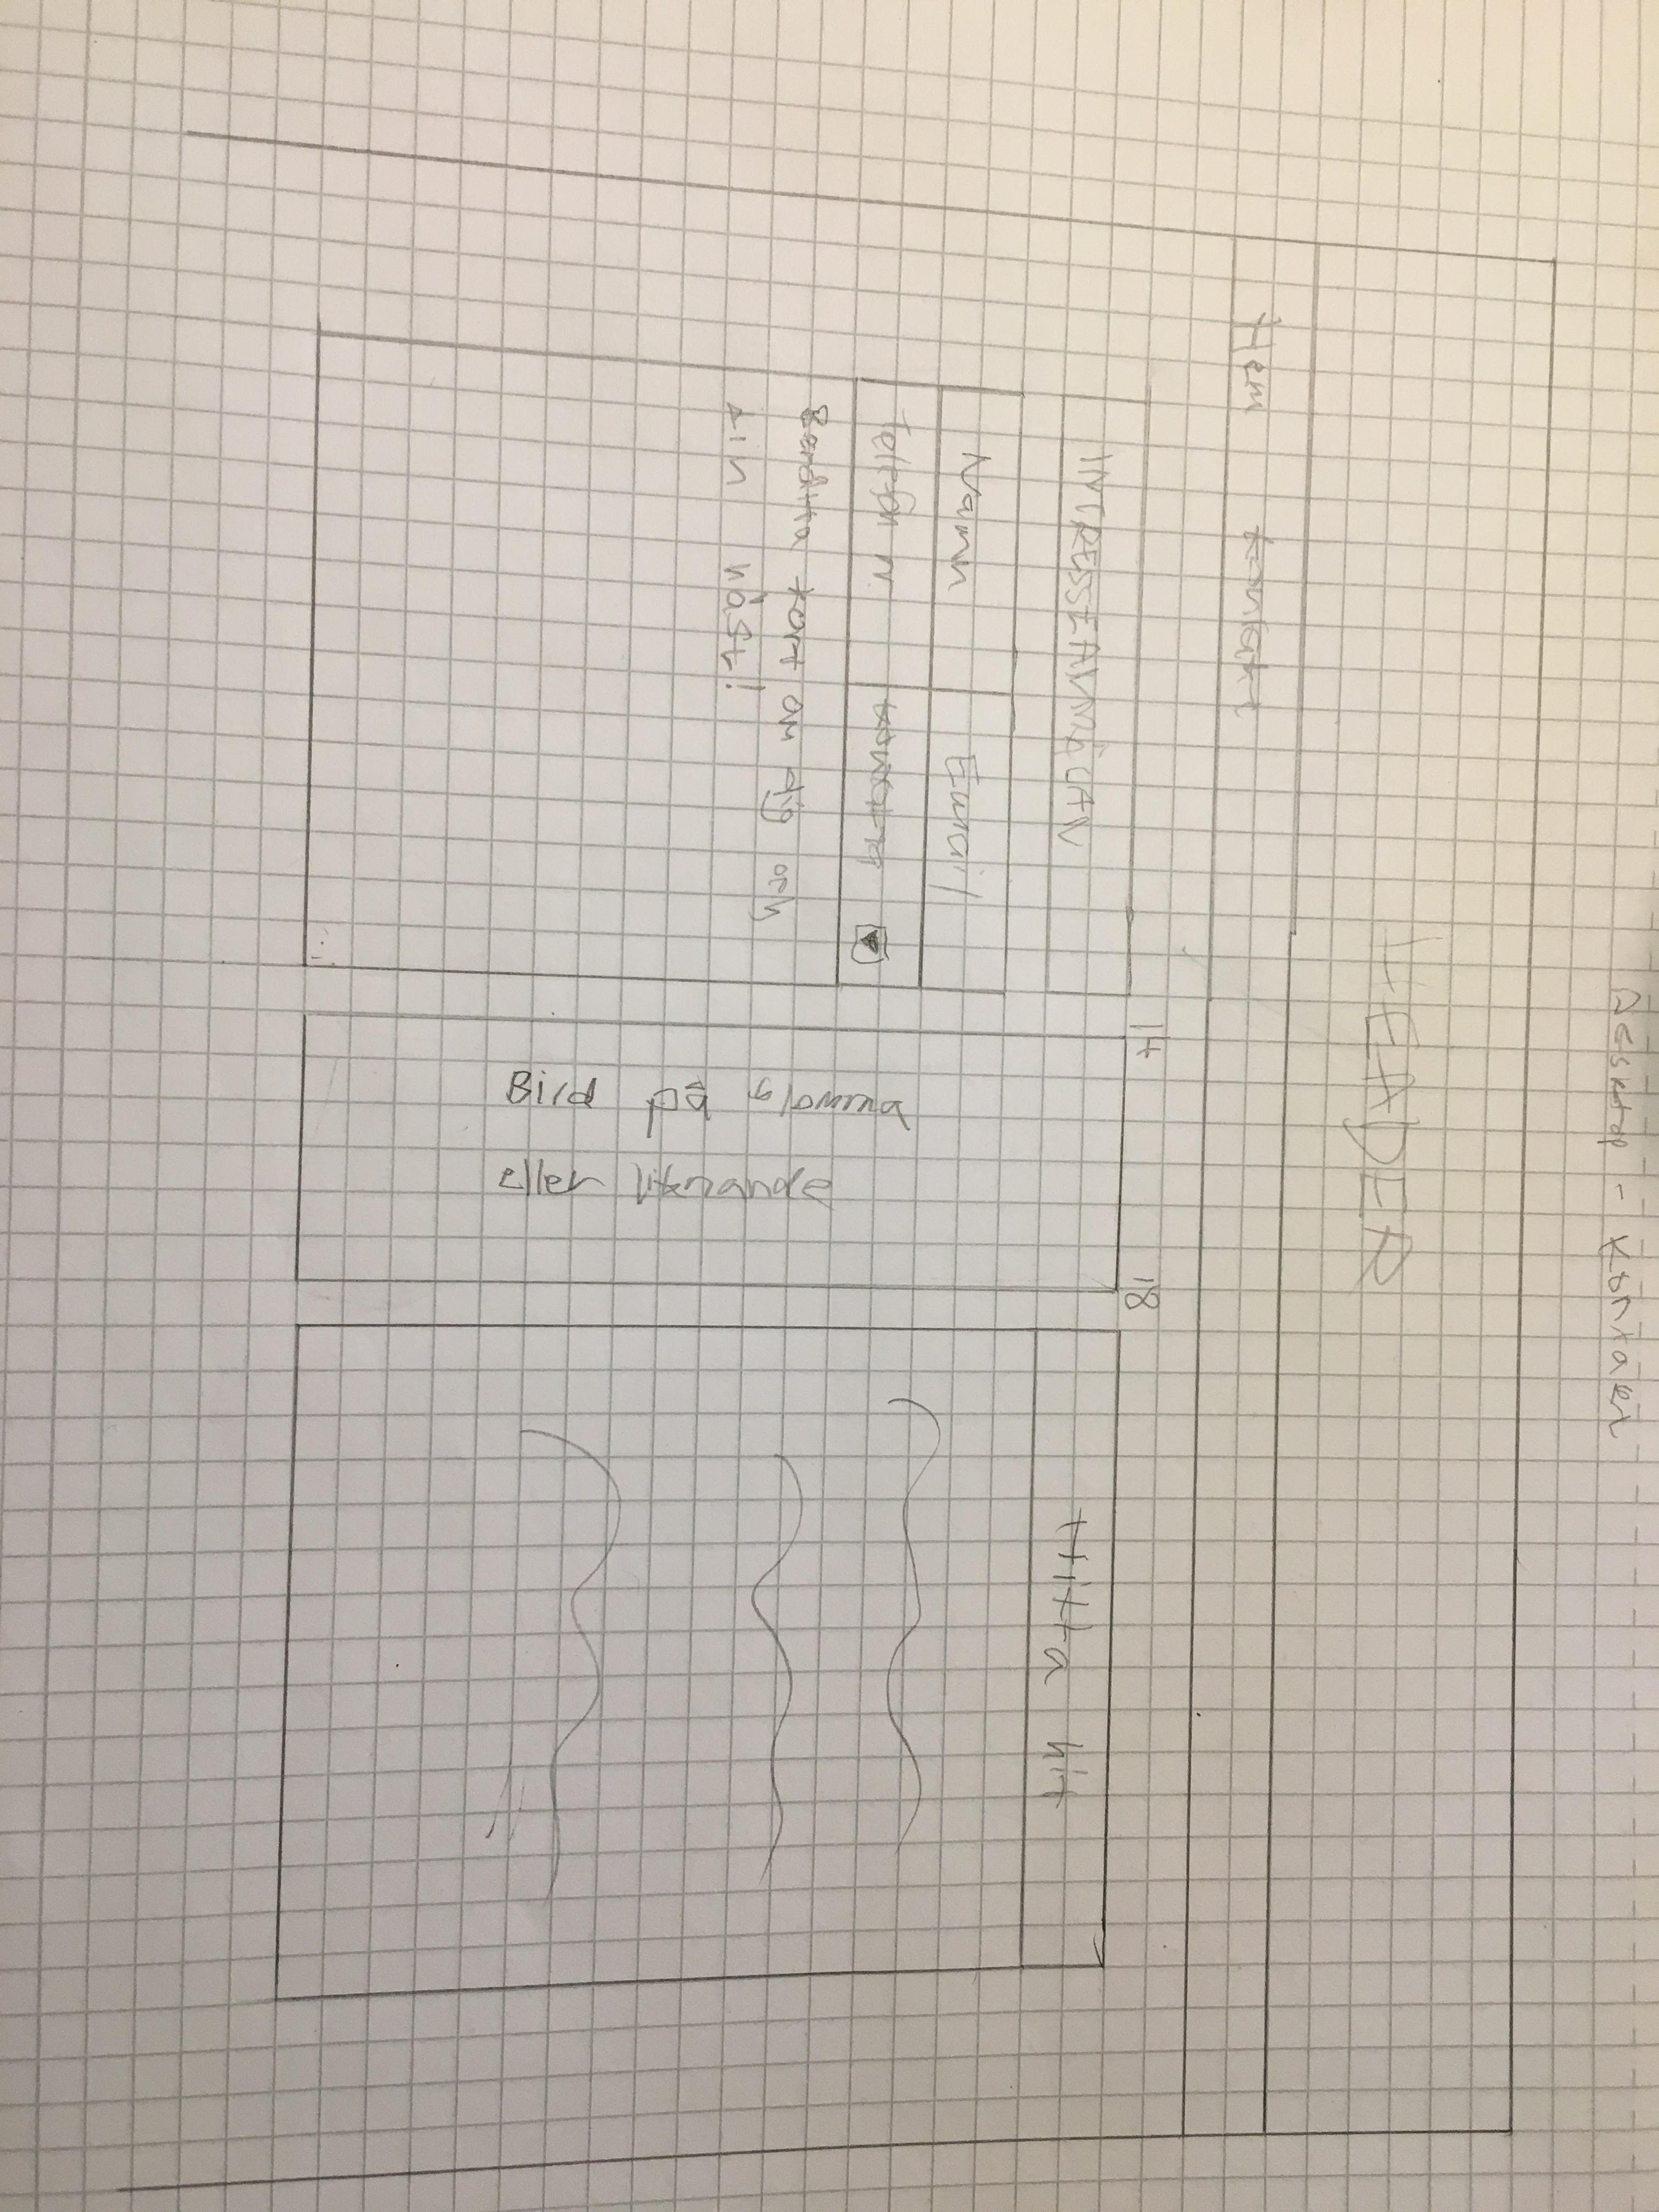 Desktop - Kontakt
HEADER
Hem Kontakt
INTRESSEANMÄLAN
Namn Email
Telefon nr.
Berätta kort om dig och
din häst!
14 18
Bild på blomma
eller liknande
Hitta hit